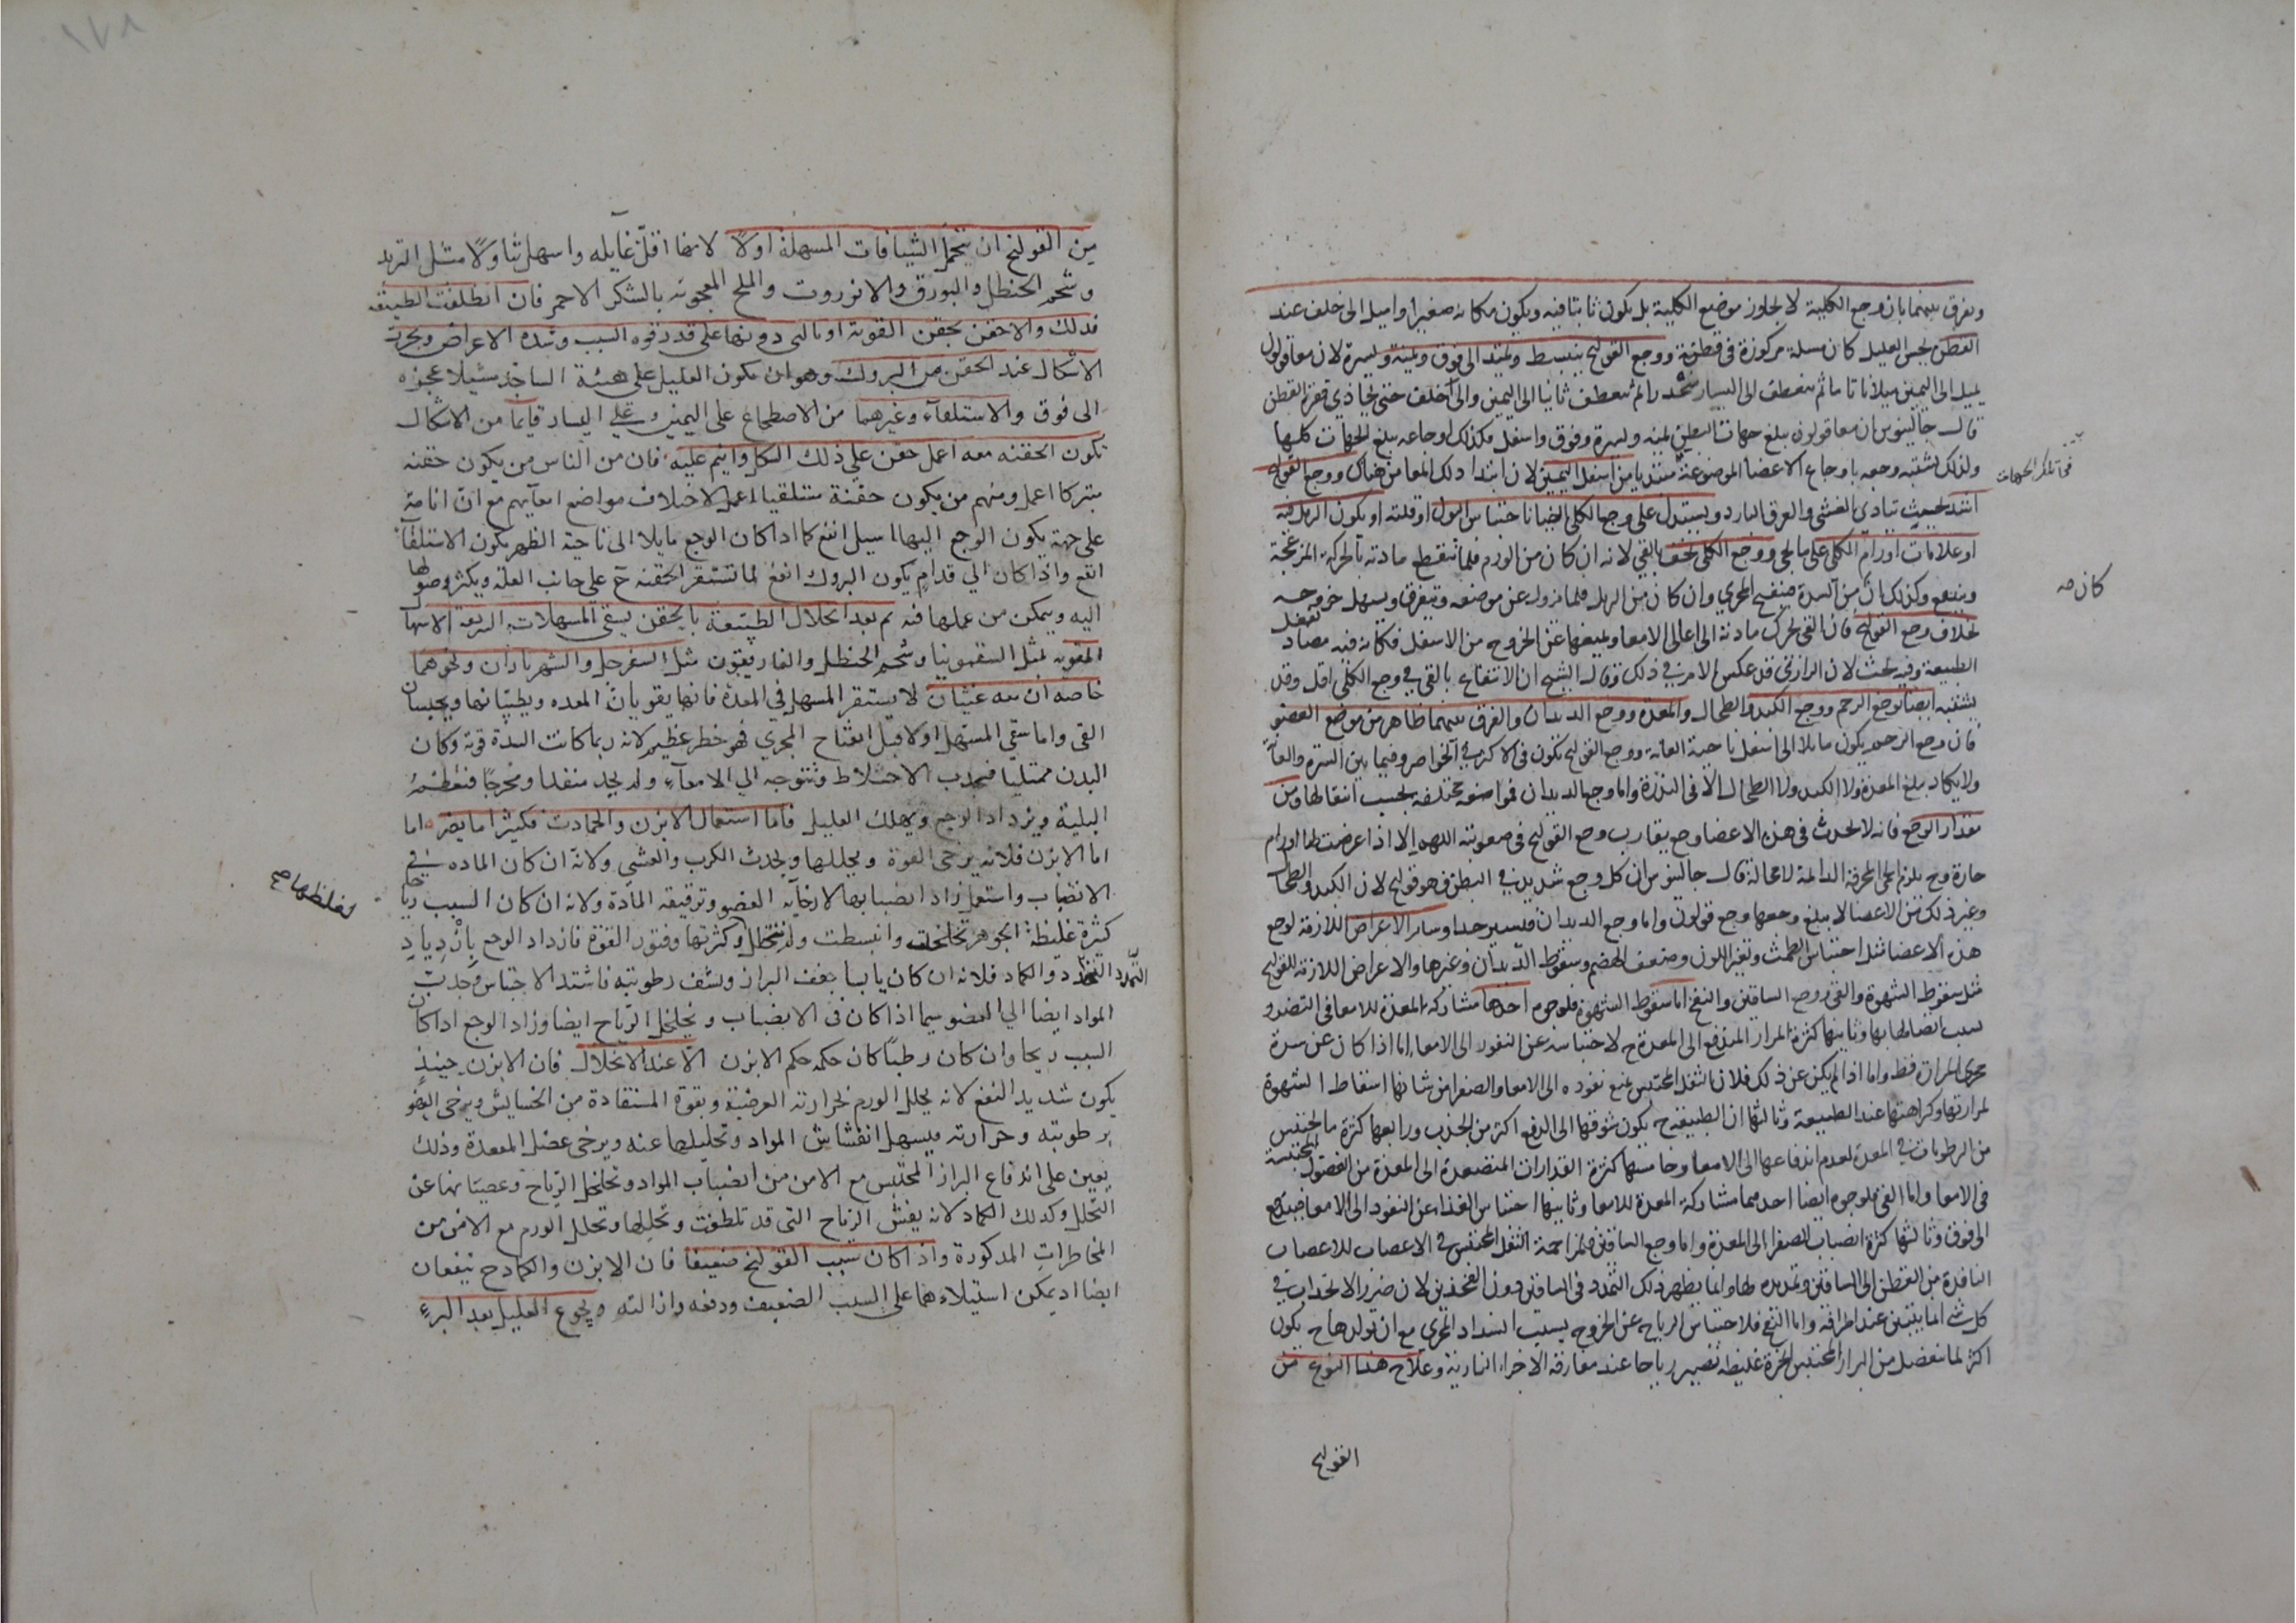 ويفرق بينهما بان وجع الكلية لا يجاوز موضع الكلية بل يكون ثابتا فيه ويكون مكانه صغيرا واميل الى خلف عند
القطن يحس العليل كان مسلة مركوزة في قطنه ووجع القولنج ينبسط ويمتد الى فوق ويمنة ويسرة لان معا قولون
يميل الى اليمين ميلا تاما ثم ينعطف الى اليسار منحدرا ثم ينعطف ثانيا الى اليمين والى خلف حتى يحاذي فقر القطن
قال جالينوس ان معا قولون يبلغ جهات البطن يمنة ويسرة وفوق واسفل فكذلك اوجاعه يبلغ الجهات كلها
ولذلك يشتبه وجعه باوجاع الاعضا الموضوعة مبتديا من اسفل اليمين لان ابتدا ذلك المعا من هناك ووجع القولنج
في تلك الجهات
اشد بحيث يتادى الى الغشي والعرق البارد ويستدل على وجع الكلى ايضا باحتباس البول او قلته او يكون الرمل فيه
او علامات اورام الكلى على ما يجي ووجع الكلى يخف بالقي لانه ان كان من الورم فلما تنقطع مادته بالحركة المزعجة
كان صه
ويندفع وكذلك ان من السدة فينفتح المجرى وان كان من الرمل فلما يزول عن موضعه ويتفرق ويسهل خروجه
بخلاف وجع القولنج فان القي يحرك مادته الى اعالي الامعا ويمنعها عن الخروج من الاسفل فكانه فيه مضاد لفعل
الطبيعة وفيه بحث لان الرازي قد عكس الامر في ذلك وقال الشيخ ان الانتفاع بالقي في وجع الكلى اقل وقد
يشتبه ايضا بوجع الرحم ووجع الكبد والطحال والمعدة ووجع الديدان والفرق بينهما ظاهر من موضع العضو
فان وجع الرحم يكون مايلا الى اسفل ناحية العانة ووجع القولنج يكون في الاكثر في الخواصر وفيما بين السرة والعانة
ولا يكاد يبلغ المعدة ولا الكبد ولا الطحال الا في الندرة واما وجع الديدان فمواضعه مختلفة بحسب انتقالها ومن
مقدار الوجع فانه لا يحدث في هذه الاعضا وجع يقارب وجع القولنج في صعوبته اللهم الا اذا عرضت لها اورام
حارة وح يلزم الحمى المحرقة الدايمة لا محالة قال جالينوس ان كل وجع شديد في البطن فهو قولنج لان الكبد والطحال
وغير ذلك من الاعضا لا يبلغ وجعها وجع قولون واما وجع الديدان فيسير جدا وساير الاعراض اللازمة لوجع
هذه الاعضا مثل احتباس الطمث وتغير اللون وضعف الهضم وسقوط الديدان وغيرها والاعراض اللازمة للقولنج
مثل سقوط الشهوة والقي ووجع الساقين والنفخ اما سقوط الشهوة فلوجوه احدها مشاركة المعدة للامعا في التضرر
بسبب اتصالها بها وثانيها كثرة المرار المندفع الى المعدة ح لاحتباسه عن النفوذ الى الامعا اما اذا كان عن سدة
مجرى المرارة فقط واما اذا لم يكن عن ذلك فلان الثفل المحتبس يمنع نفوذه الى الامعا والصفرا من شانها اسقاط الشهوة
لمرارتها وكراهتها عند الطبيعة وثالثها ان الطبيعة ح يكون شوقها الى الدفع اكثر من الجذب ورابعها كثرة ما يحتبس
من الرطوبات في المعدة لعدم اندفاعها الى الامعا وخامسها كثرة القذارات المتصعدة الى المعدة من الفضول المحتبسة
في الامعا واما القي فلوجوه ايضا احدهما مشاركة المعدة للامعا وثانيها احتباس الغذاء عن النفوذ الى الامعا فيندفع
الى فوق وثالثها كثرة انصباب الصفرا الى المعدة واما وجع الساقين فلمزاحمة الثفل المحتبس في الاعصاب للاعصاب
النافذة من القطن الى الساقين وتمديده لها وانما يظهر ذلك التمدد في الساقين دون الفخذين لان ضرر الانجذاب في
كل شي انما يتبين عند اطرافه واما النفخ فلاحتباس الرياح عن الخروج بسبب انسداد المجرى مع ان تولدها ح يكون
اكثر لما ينفصل من البراز المحتبس ابخرة غليظة تصير رياحا عند مفارقة الاجزاء النارية وعلاج هذا النوع من
القولنج
من القولنج ان يتحمل الشيافات المسهلة اولا لانها اقل غايلة واسهل تناولا مثل التربد
وشحم الحنظل والبورق والانزروت والملح المعجونة بالسكر الاحمر فان انطلقت الطبيعة
فذلك والا حقن بحقن القوية او بالتي دونها على قدر قوة السبب وشدة الاعراض ويجرب
الاشكال عند الحقن من البروك وهو ان يكون العليل على هيئة الساجد مشيلا عجزه
الى فوق والاستلقاء وغيرهما من الاضطجاع على اليمين وعلى اليسار فايما من الاشكال
تكون الحقنة معه اعمل حقن على ذلك الشكل واينم عليه فان من الناس من يكون حقنه
متبركا اعمل ومنهم من يكون حقنة مستلقيا اعمل لاختلاف مواضع امعايهم مع ان انامة
على جهة يكون الوجع اليها اميل انفع كما اذا كان الوجع مايلا الى ناحية الظهر يكون الاستلقاء
انفع واذا كان الي قدام يكون البروك انفع لما تستقر الحقنة ح على جانب العلة ويكثر وصولها
اليه ويتمكن من عملها فيه ثم بعد انحلال الطبيعة بالحقن يسقى المسهلات السريعة الاسهال
المقوية بمثل السقمونيا وشحم الحنظل والغاريقون مثل السفرجلي والشهرياران ونحوهما
خاصة ان معه غثيان لا يستقر المسهل في المعدة فانها يقويان المعدة ويطيبانها ويحبسان
القي واما سقي المسهل اولا قبل انفتاح المجرى فهو خطر عظيم لانه ربما كانت السدة قوية وكان
البدن ممتليا فيجذب الاخلاط وتتوجه الي الامعاء ولم يجد منفذا ومخرجا فتعظم
البلية ويزداد الوجع ويهلك العليل فاما استعمال الابزن والكمادات فكثيرا ما يضر اما
اما الابزن فلانه يرخى القوة ويحللها ويحدث الكرب والغشي ولانه ان كان المادة في
الانصباب واستعمل زاد انصبابها لارخايه العضو وترقيقه المادة ولانه ان كان السبب رياحا
لغلظها صح
كثيرة غليظة الجوهر تخلخلت وانبسطت ولم تتحلل وكثرتها وفتور القوة فازداد الوجع بازدياد
التمدد والكماد فلانه ان كان يابسا جفف البراز ونشف رطوبته فاشتد الاحتباس وجذبت
المواد ايضا الي العضو سيما اذا كان في الانصباب ويخلخل الرياح ايضا وزاد الوجع اذا كان
السبب ريحا وان كان رطبا كان حكمه حكم الابزن الا عند الانحلال فان الابزن حينيذ
يكون شديد النفع لانه يحلل الورم بحرارته العرضية وبقوة المستفادة من الحشايش ويرخى العضو
برطوبته وحرارته فيسهل انفشاش المواد وتحليلها عنه ويرخى عضل المقعدة وذلك
يعين على اندفاع البراز المحتبس مع الامن من انصباب المواد وتخلخل الرياح وعصيانها عن
التحلل وكذلك الكماد لانه يفش الرياح التى قد تلطفت وتحللها وتحلل الورم مع الامن من
المخاطرات المذكورة واذا كان سبب القولنج ضعيفا فان الابزن والكماد ح ينفعان
ايضا اذ يمكن استيلاءهما على السبب الضعيف ودفعه وازالته ويجوع العليل بعد البرء